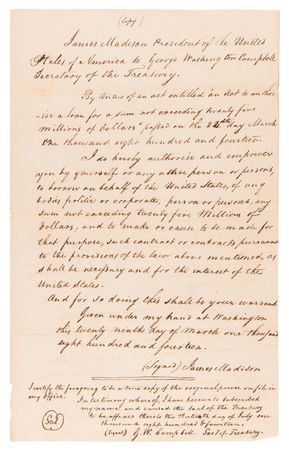 (Copy)
James Madison President of the United
States of America to George Washington Campbell
Secretary of the Treasury.
By virtue of an act entitled An Act to author-
ise a loan for a sum not exceeding twenty five
millions of dollars" passed on the 24th day March
One thousand eight hundred and fourteen.
I do hereby authorise and empower
you by yourself or any other person or persons,
to borrow on behalf of the United States, of any
bodies politic or corporate, person or persons, any
sum not exceeding twenty five Millions of
dollars, and to make or cause to be made for
that purpose, such contract or contracts, pursuant
to the provisions of the law above mentioned, as
shall be necessary and for the interest of the
United States.
And for so doing this shall be your warrant
Given under my hand at Washington
this twenty ninth day of March one thousand
eight hundred and fourteen.
(Signed) James Madison
I certify the foregoing to be a true copy of the original power on file in
my Office.
In testimony whereof I have hereunto subscribed
my name and caused the Seal of the Treasury
to be affixed hereto the thirtieth day of July one
thousand eight hundred & fourteen.
(Signed) G. W. Campbell Sec. of Treasury.
Seal